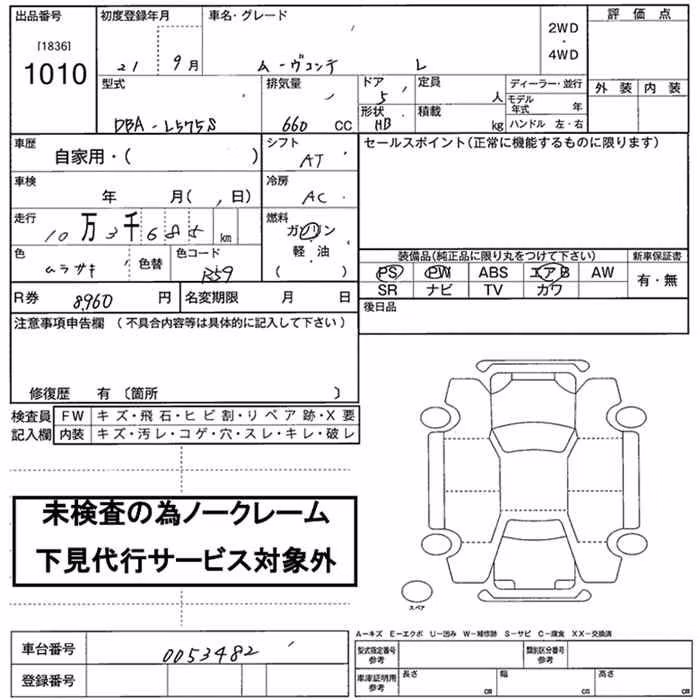 出品番号 初度登録年月 車名・グレード 評価点
［1836］
1010
21 9月 ムーヴコンテ L
2WD
・
4WD
外装 内装
型式 排気量 ドア 定員 ディーラー・並行
5 人 モデル年式 年
DBA-L575S 660 CC 形状 HB 積載 kg ハンドル 左・右
車歴 自家用・( ) シフト AT セールスポイント(正常に機能するものに限ります)
車検 年 月( 、日) 冷房 AC
走行 10万3千685 km 燃料 ガソリン
軽・油
( )
色 ムラサキ 色替 色コード R59
装備品(純正品に限り丸をつけて下さい) 新車保証書
PS PW ABS エアB AW 有・無
SR ナビ TV カワ
R券 8,960 円 名変期限 月 日 後日品
注意事項申告欄 (不具合内容等は具体的に記入して下さい)
修復歴 有〔箇所 〕
検査員 FW キズ・飛石・ヒビ割・リペア跡・X要
記入欄 内装 キズ・汚レ・コゲ・穴・スレ・キレ・破レ
未検査の為ノークレーム
下見代行サービス対象外
スペア
A−キズ E−エクボ U−凹み W−補修跡 S−サビ C−腐食 XX−交換済
車台番号 0053482
型式指定番号 参考 類別区分番号 参考
登録番号
車庫証明用 参考 長さ cm 幅 cm 高さ cm